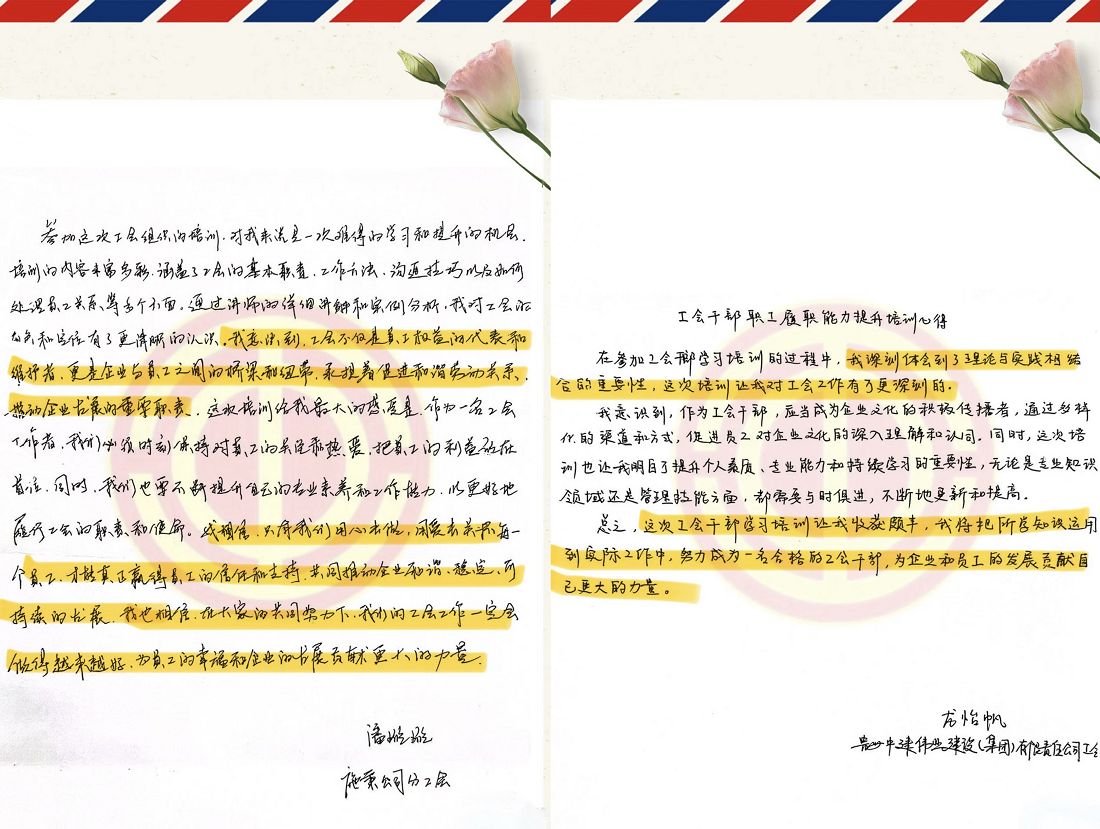 参加这次工会组织的培训,对我来说是一次难得的学习和提升的机会.
培训的内容丰富多彩,涵盖了工会的基本职责、工作方法、沟通技巧以及如何
处理员工关系等多个方面。通过讲师的详细讲解和案例分析,我对工会的
角色和定位有了更清晰的认识。我意识到,工会不仅是员工权益的代表和
维护者,更是企业与员工之间的桥梁和纽带,承担着促进和谐劳动关系、
推动企业发展的重要职责。这次培训给我最大的感受是,作为一名工会
工作者,我们必须时刻保持对员工的关注和热爱,把员工的利益放在
首位.同时,我们也要不断提升自己的专业素养和工作能力,以更好地
履行工会的职责和使命。我相信,只有我们用心去做,用爱去关怀每一
个员工,才能真正赢得员工的信任和支持,共同推动企业和谐、稳定、可
持续的发展.我也相信,在大家的共同努力下,我们的工会工作一定会
做得越来越好,为员工的幸福和企业的发展贡献更大的力量.
施秉公司分工会
工会干部职工履职能力提升培训心得
在参加工会干部学习培训的过程中,我深刻体会到了理论与实践相结
合的重要性,这次培训让我对工会工作有了更深刻的。
我意识到,作为工会干部,应当成为企业文化的积极传播者,通过多样
化的渠道和方式,促进员工对企业文化的深入理解和认同。同时,这次培
训也让我明白了提升个人素质、专业能力和持续学习的重要性,无论是专业知识
领域还是管理技能方面,都需要与时俱进,不断地更新和提高。
总之,这次工会干部学习培训让我收获颇丰,我将把所学知识运用
到实际工作中,努力成为一名合格的工会干部,为企业和员工的发展贡献自
己更大的力量。
龙怡帆
贵州中建伟业建设(集团)有限责任公司工会